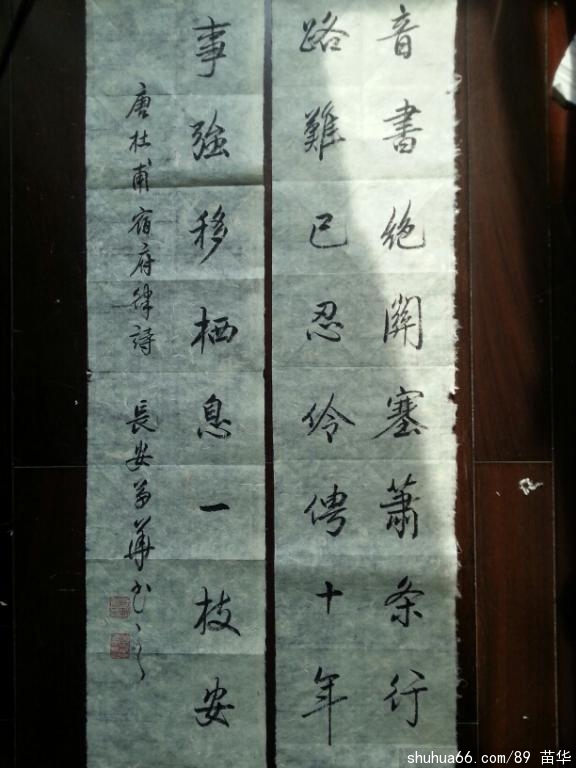 音書绝關塞蕭条行
路難已忍伶俜十年
事強移栖息一枝安
唐杜甫宿府律詩 長安苗華书
shuhua66.com/89 苗华